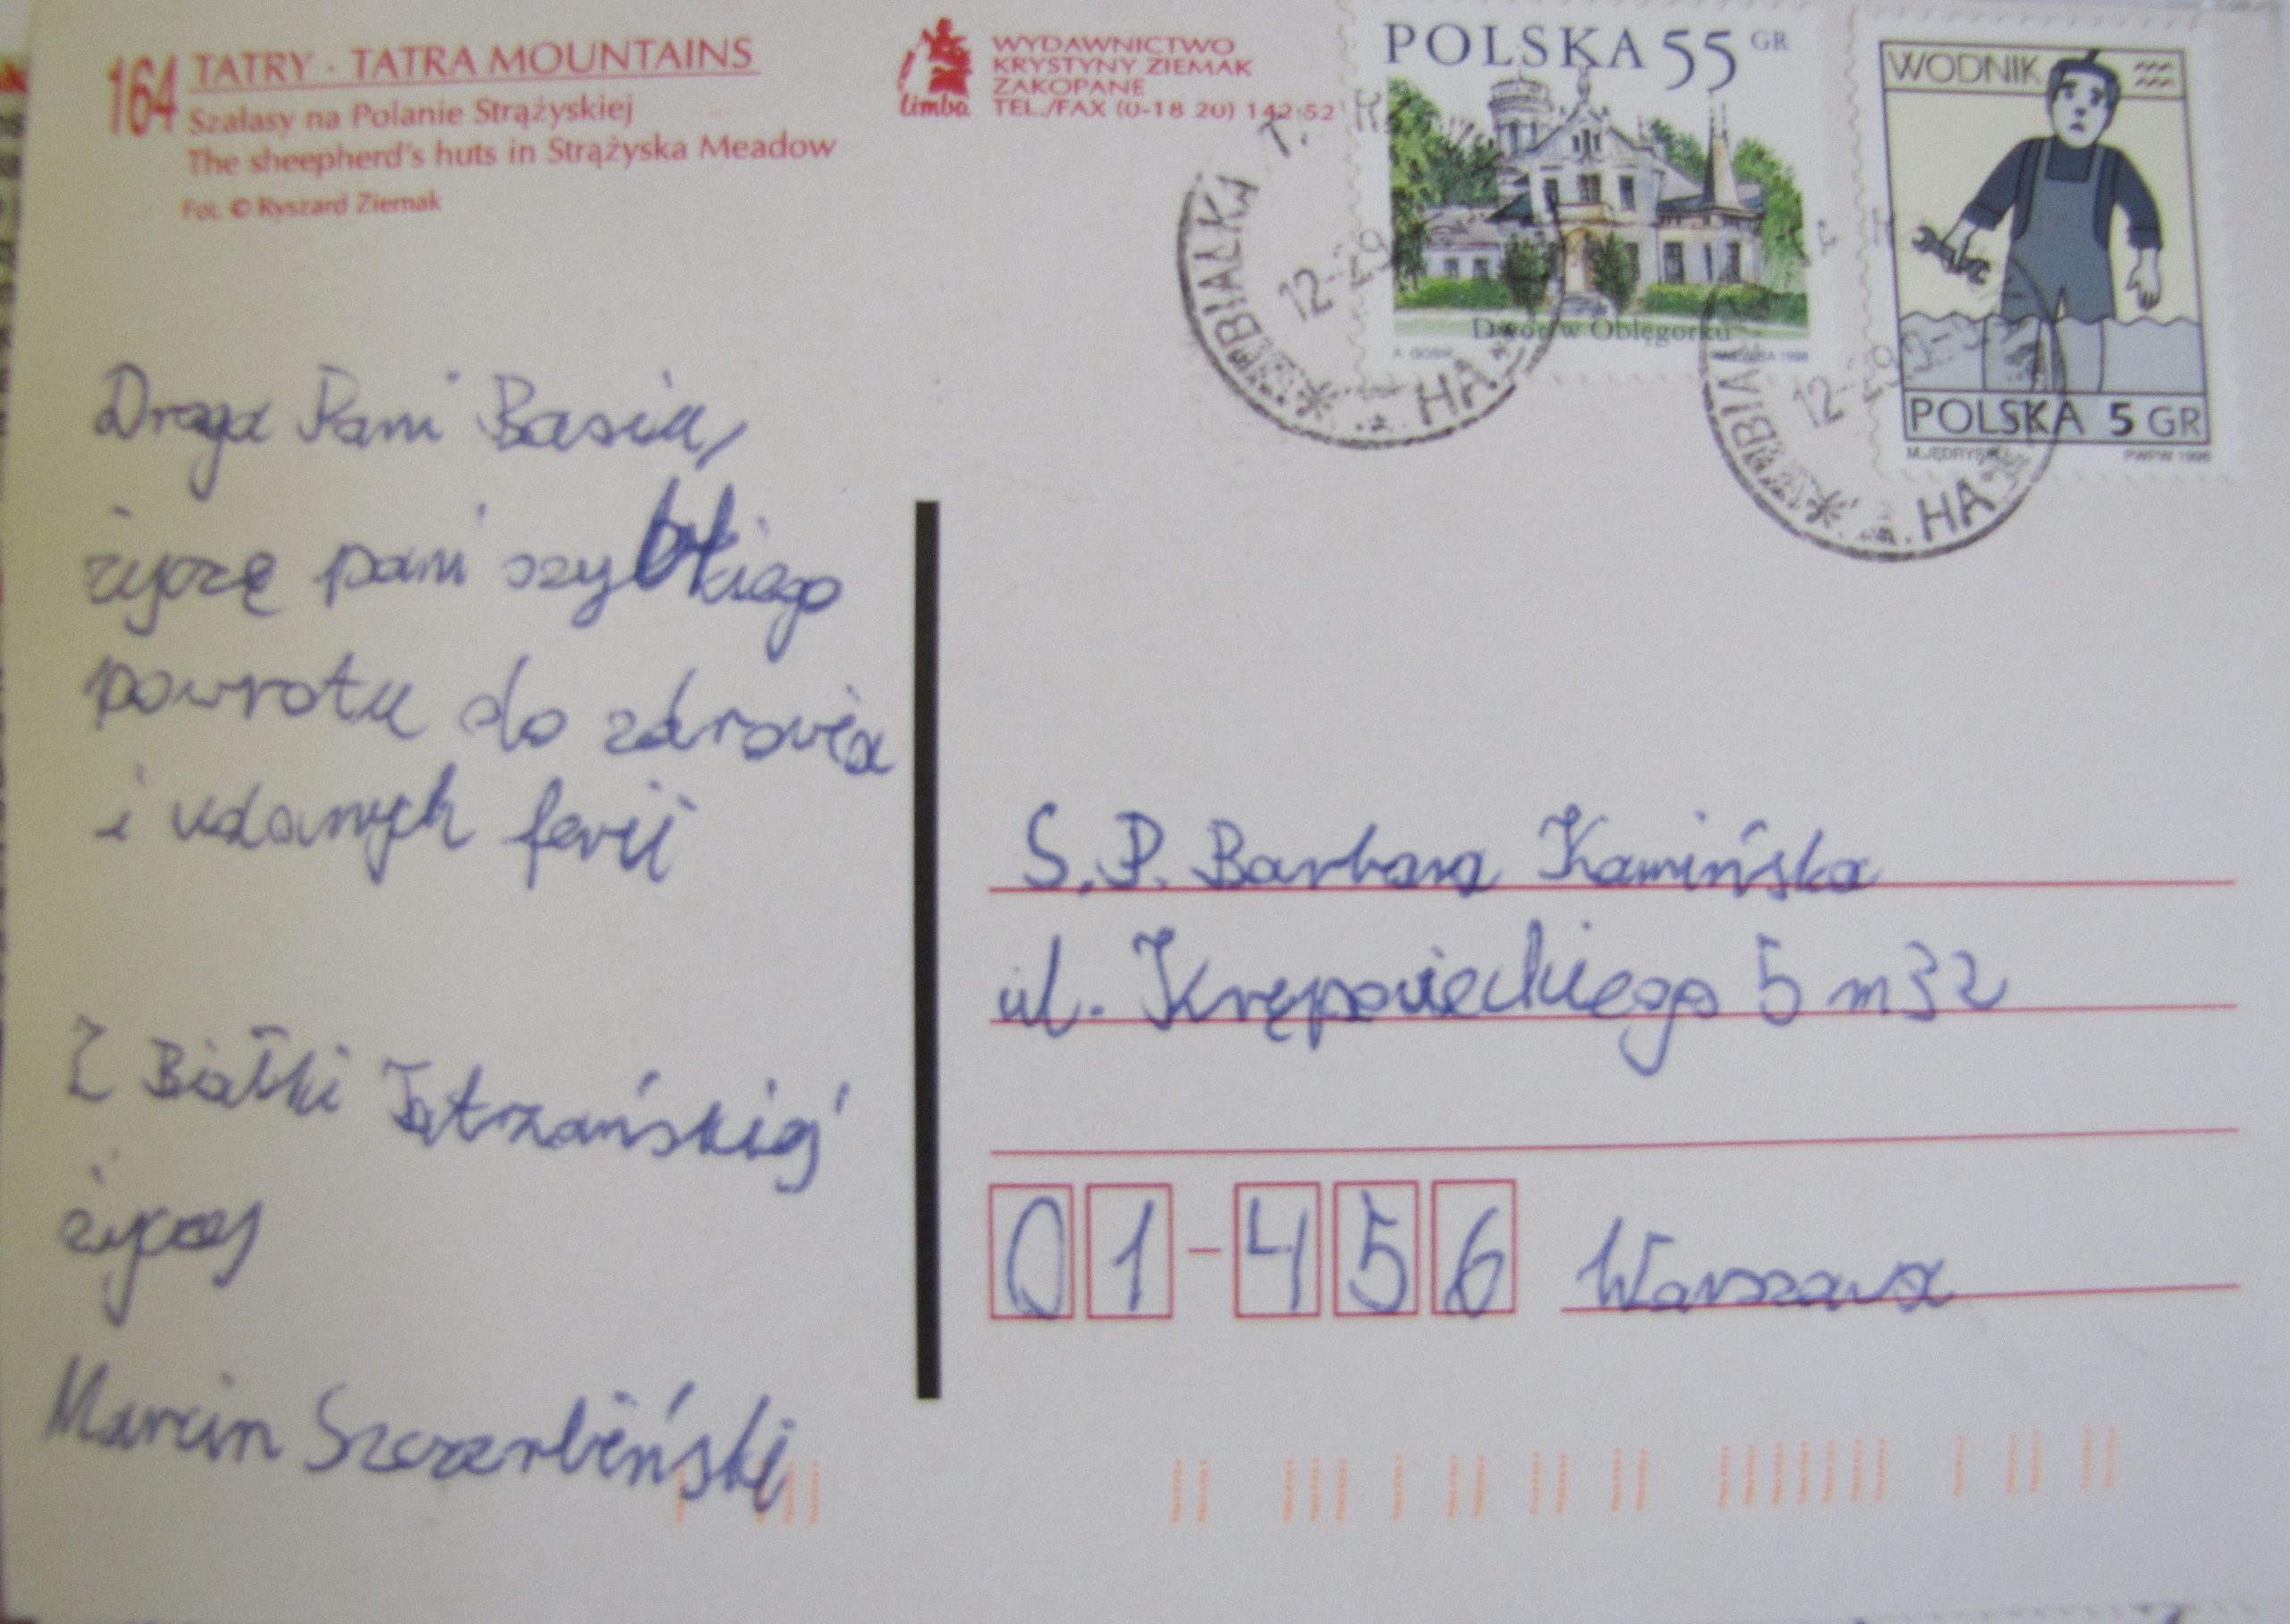 164 TATRY - TATRA MOUNTAINS
Szałasy na Polanie Strążyskiej
The sheepherd's huts in Strążyska Meadow
Fot. © Ryszard Ziemak
limba
WYDAWNICTWO
KRYSTYNY ZIEMAK
ZAKOPANE
TEL./FAX (0-18 20) 142 52
POLSKA 55 GR
Dwór w Oblęgorku
WODNIK
POLSKA 5 GR
PWPW 1996
BIAŁKA T.
12-29
HA
12-29
HA
Droga Pani Basiu,
życzę pani szybkiego
powrotu do zdrowia
i udanych ferii
Z Białki Tatrzańskiej
życzy
Marcin Szczerbiński
S.P. Barbara Kamińska
ul. Krępowieckiego 5 m 32
01-456 Warszawa